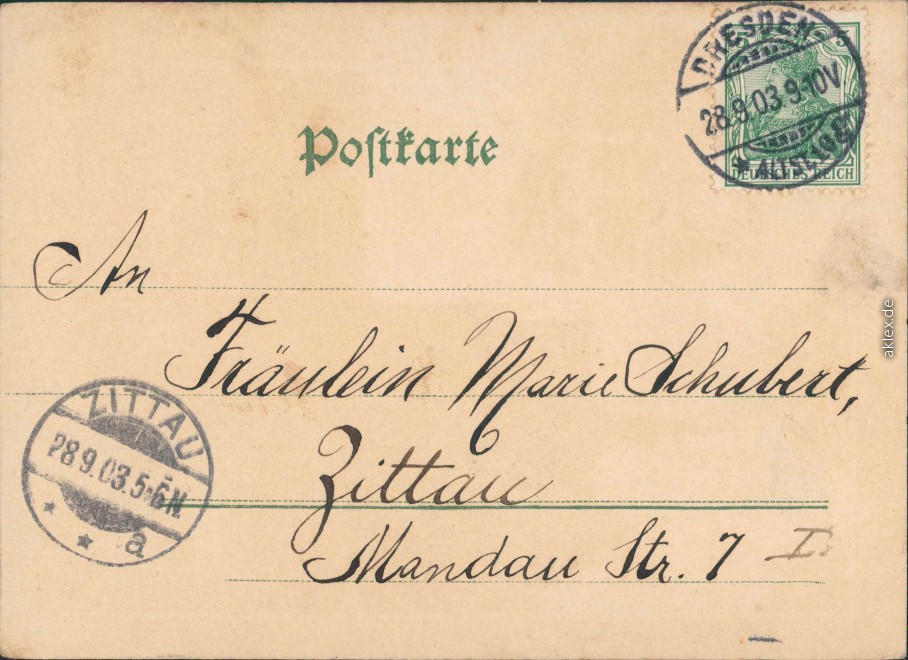 DRESDEN
28.9.03.9-10V
* ALTST.19g
DEUTSCHES REICH
Poſtkarte
An
Fräulein Marie Schubert,
Zittau
Mandau Str. 7 I.
ZITTAU
28.9.03.5-6N.
* * a
aklex.de